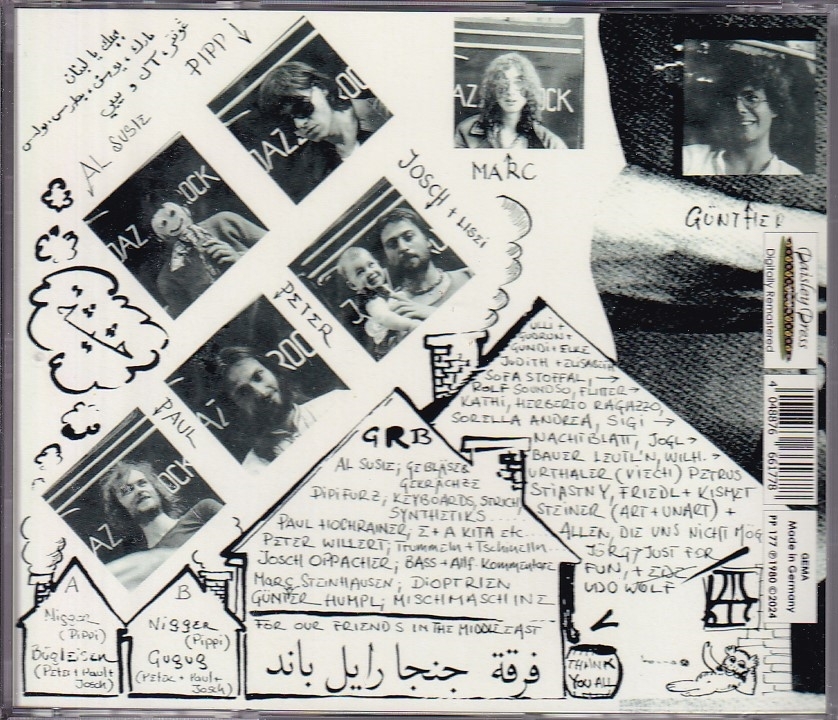 يا لبنان
PIPPI
AL SUSIE
MARC
JOSCH + LISZI
GÜNTHER
PETER
PAUL
AZ OCK
Paisley Press
Digitally Remastered
4 048876 661778
PP 177 ℗1980 ©2024
Made in Germany
GEMA
ULLI +
GUDRUN +
GUNDI + ELKE
JUDITH + ELISABETH
SOFA STOFFAL, →
ROLF SOUNDSO, →
KATHI, HERBERTO RAGAZZO,
SORELLA ANDREA, SIGI →
NACHTBLATT, JOGL →
BAUER LEUTL'N, WILH. →
URTHALER (VIECH) PETRUS
STIASTNY, FRIEDL + KISMET
STEINER (ART + UNART) +
ALLEN, DIE UNS NICHT MÖG
JÖRG → JUST FOR
FUN, +
UDO WOLF
GRB
AL SUSIE; GEBLÄSE
GEKRÄCHZE
DIPIFURZ; KEYBOARDS, STRICH
SYNTHETIKS....
PAUL HOCHRAINER; E + A KITA etc...
PETER WILLERT; Trummeln + Tschinelln...
JOSCH OPPACHER; BASS + Allf. Kommentare
MARC STEINHAUSEN; DIOPTRIEN
GÜNTER HUMPL; MISCHMASCHINE
FOR OUR FRIENDS IN THE MIDDLE EAST
فرقة جنجا رايل باند
A
Nigger
(Pippi)
Bügleisen
(Peter + Paul +
Josch)
B
NIGGER
(Pippi)
GUGUG
(Peter + Paul +
Josch)
THANK
YOU ALL